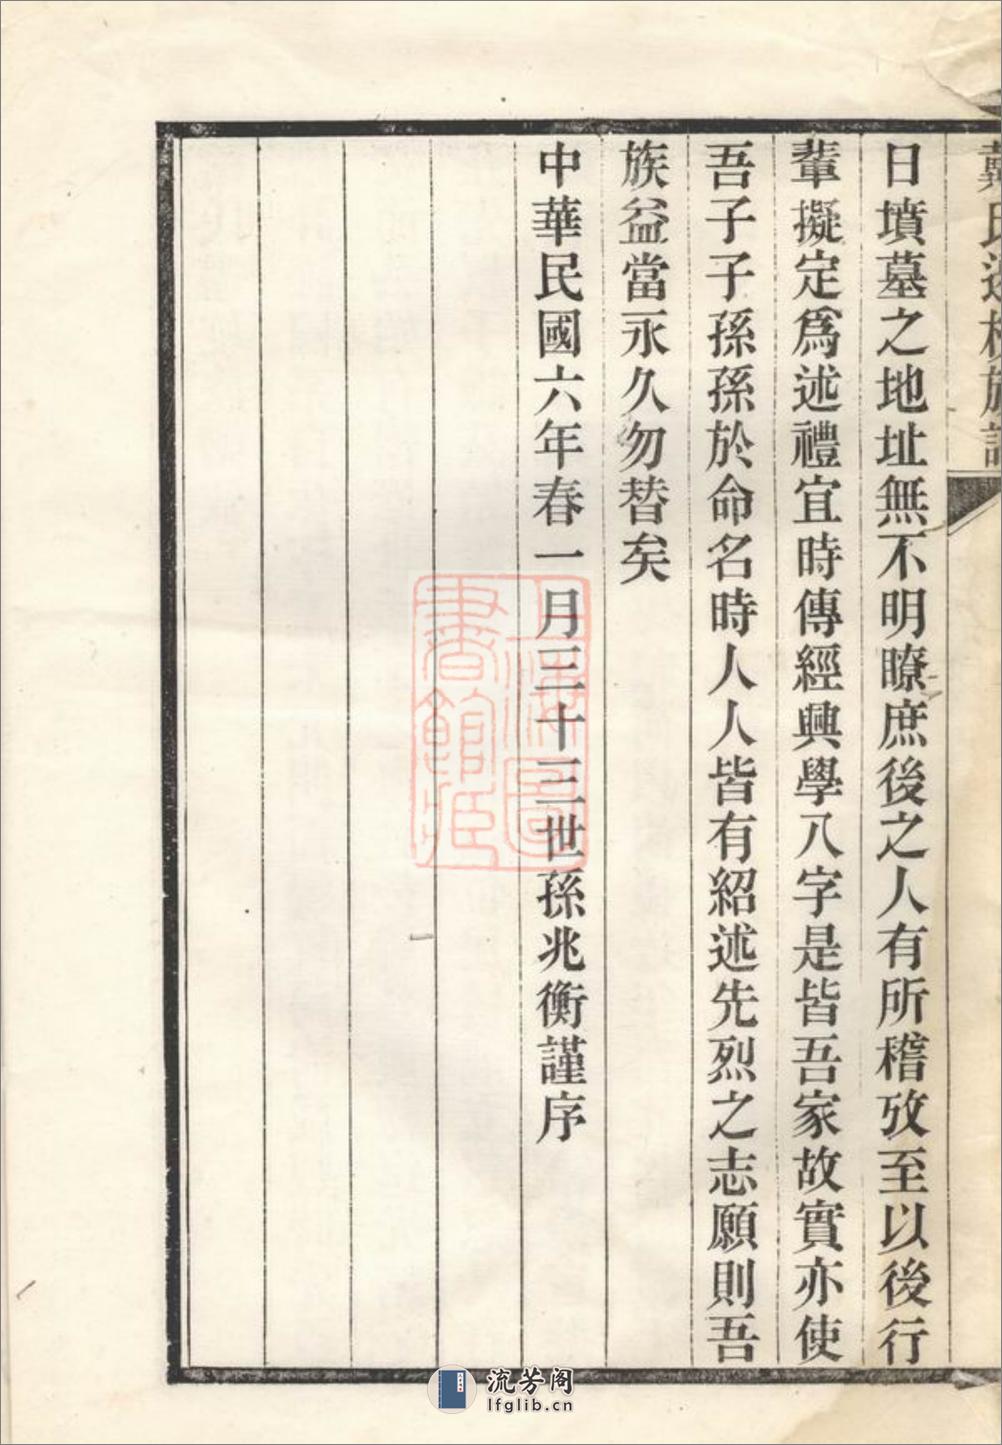 日墳墓之地址無不明瞭庶後之人有所稽攷至以後行
輩擬定爲述禮宜時傳經興學八字是皆吾家故實亦使
吾子子孫孫於命名時人人皆有紹述先烈之志願則吾
族益當永久勿替矣
中華民國六年春一月三十三世孫兆衡謹序
上海圖
書館藏
流芳阁
lfglib.cn